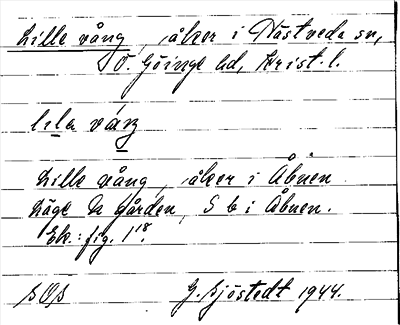 Lille vång, åker i Hästveda sn,
V. Göinge hd, Krist. l.
lila váŋ
Lille vång, åker i Åbuen
Läge N gården, S b i Åbuen.
Ek.: fig. 1¹⁸.
SOS G. Sjöstedt 1944.